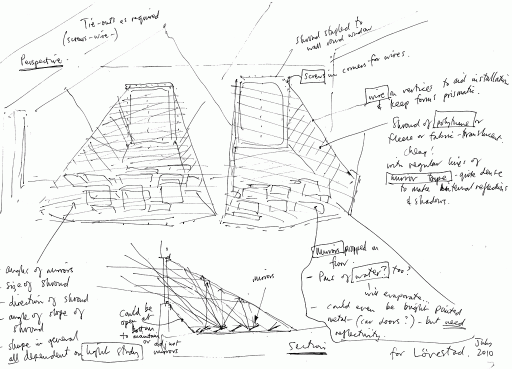 Tie-outs as required
(screws-wire-)
Perspective
shroud stapled to
wall round window
screws in corners for wires.
wire in vertices to aid installation
& keep form prismatic.
Shroud of polythene or
fleece or fabric - translucent.
cheap!
with regular lines of
mirror tape - quite dense
to make internal reflections
& shadows.
- angle of mirrors
- size of shroud
- direction of shroud
- angle of slope of
shroud
- shape in general
all dependent on light study
Could be
open at
bottom
to maintain
or
mirrors
mirrors
Section
Mirrors propped on
floor
- Pans of water? too?
will evaporate...
- could even be bright painted
metal - (car doors?) - but need
reflectivity.
for Lövestad.
2010